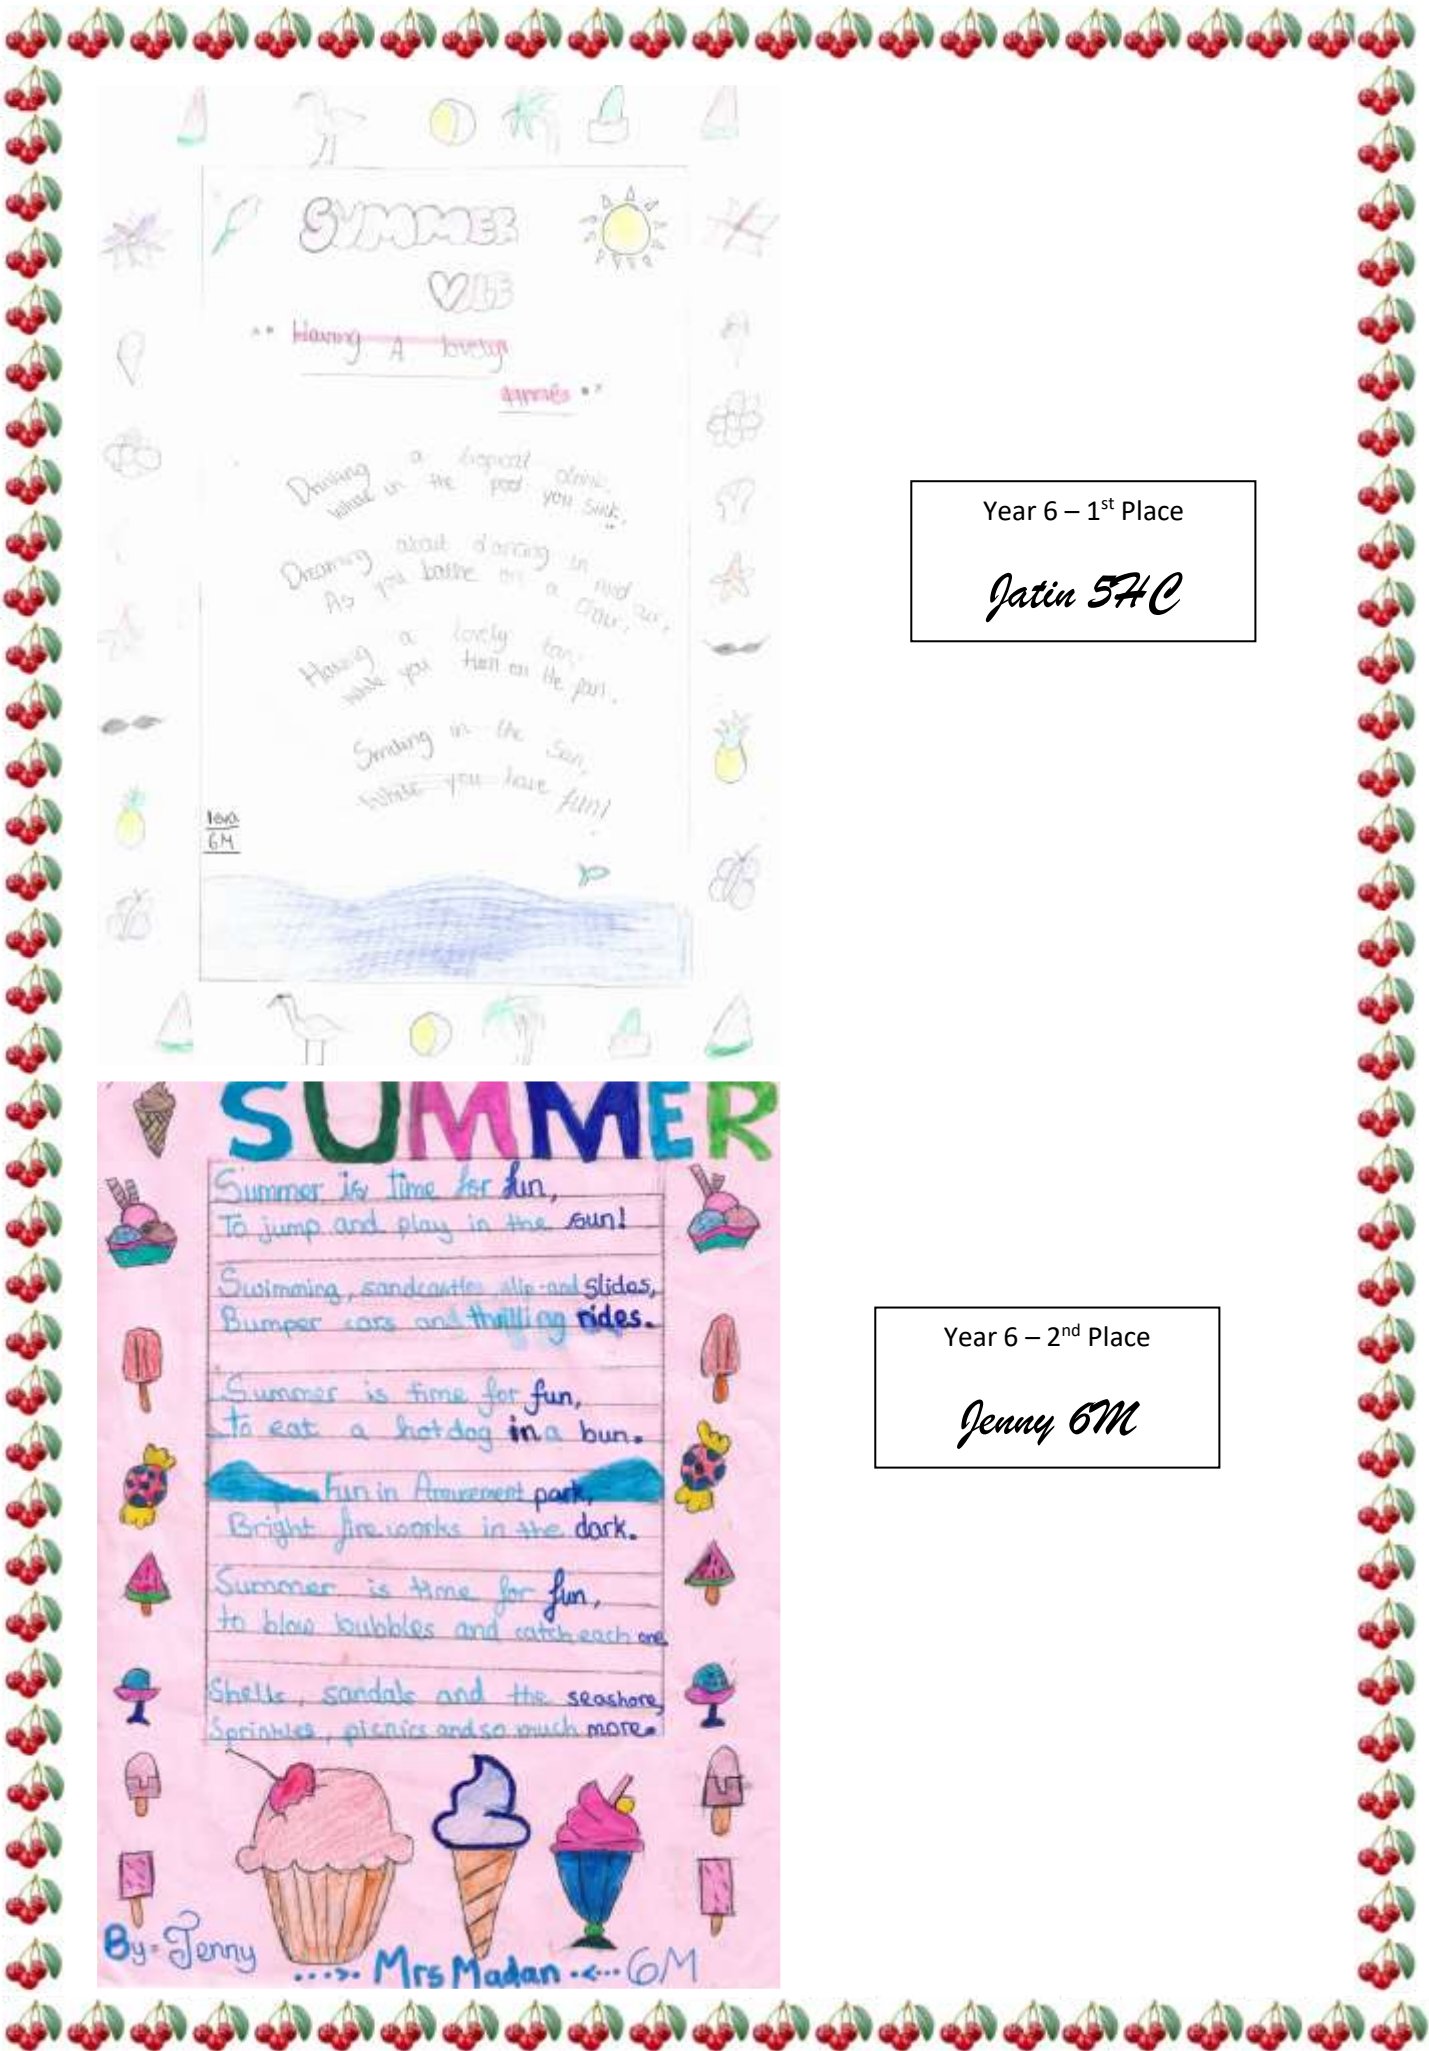 SUMMER
VIBE
Having A lovely
Drinking a tropical drink,
While in the pool you sink,
Dreaming about dancing in mid air,
As you bathe on a chair,
Having a lovely tan,
While you turn on the fan.
Smiling in the Sun,
While you have fun!
6M
Year 6 – 1st Place
Jatin 5HC
SUMMER
Summer is time for fun,
To jump and play in the sun!
Swimming, sandcastles, slip-and slides,
Bumper cars and thrilling rides.
Summer is time for fun,
to eat a hotdog in a bun.
Fun in Amusement park,
Bright fireworks in the dark.
Summer is time for fun,
to blow bubbles and catch each one
Shells, sandals and the seashore,
Sprinkles, picnics and so much more.
By= Jenny
Mrs Madan
6M
Year 6 – 2nd Place
Jenny 6M